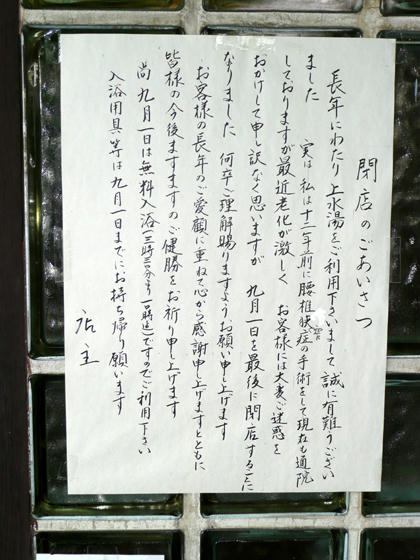 閉店のごあいさつ
長年にわたり上水湯をご利用下さいまして誠に有難うござい
ました 実は私は十二年前に腰椎狭症の手術をして現在も通院
しておりますが最近老化が激しく お客様には大変ご迷惑を
おかけして申し訳なく思いますが 九月一日を最後に閉店することに
なりました 何卒ご理解賜りますようお願い申し上げます
お客様の長年のご愛顧に重ねて心から感謝申し上げますとともに
皆様の今後ますますのご健勝をお祈り申し上げます
尚 九月一日は無料入浴(三時三〇分より一一時迄)ですのでご利用下さい
入浴用具等は九月一日までにお持ち帰り願います
店主